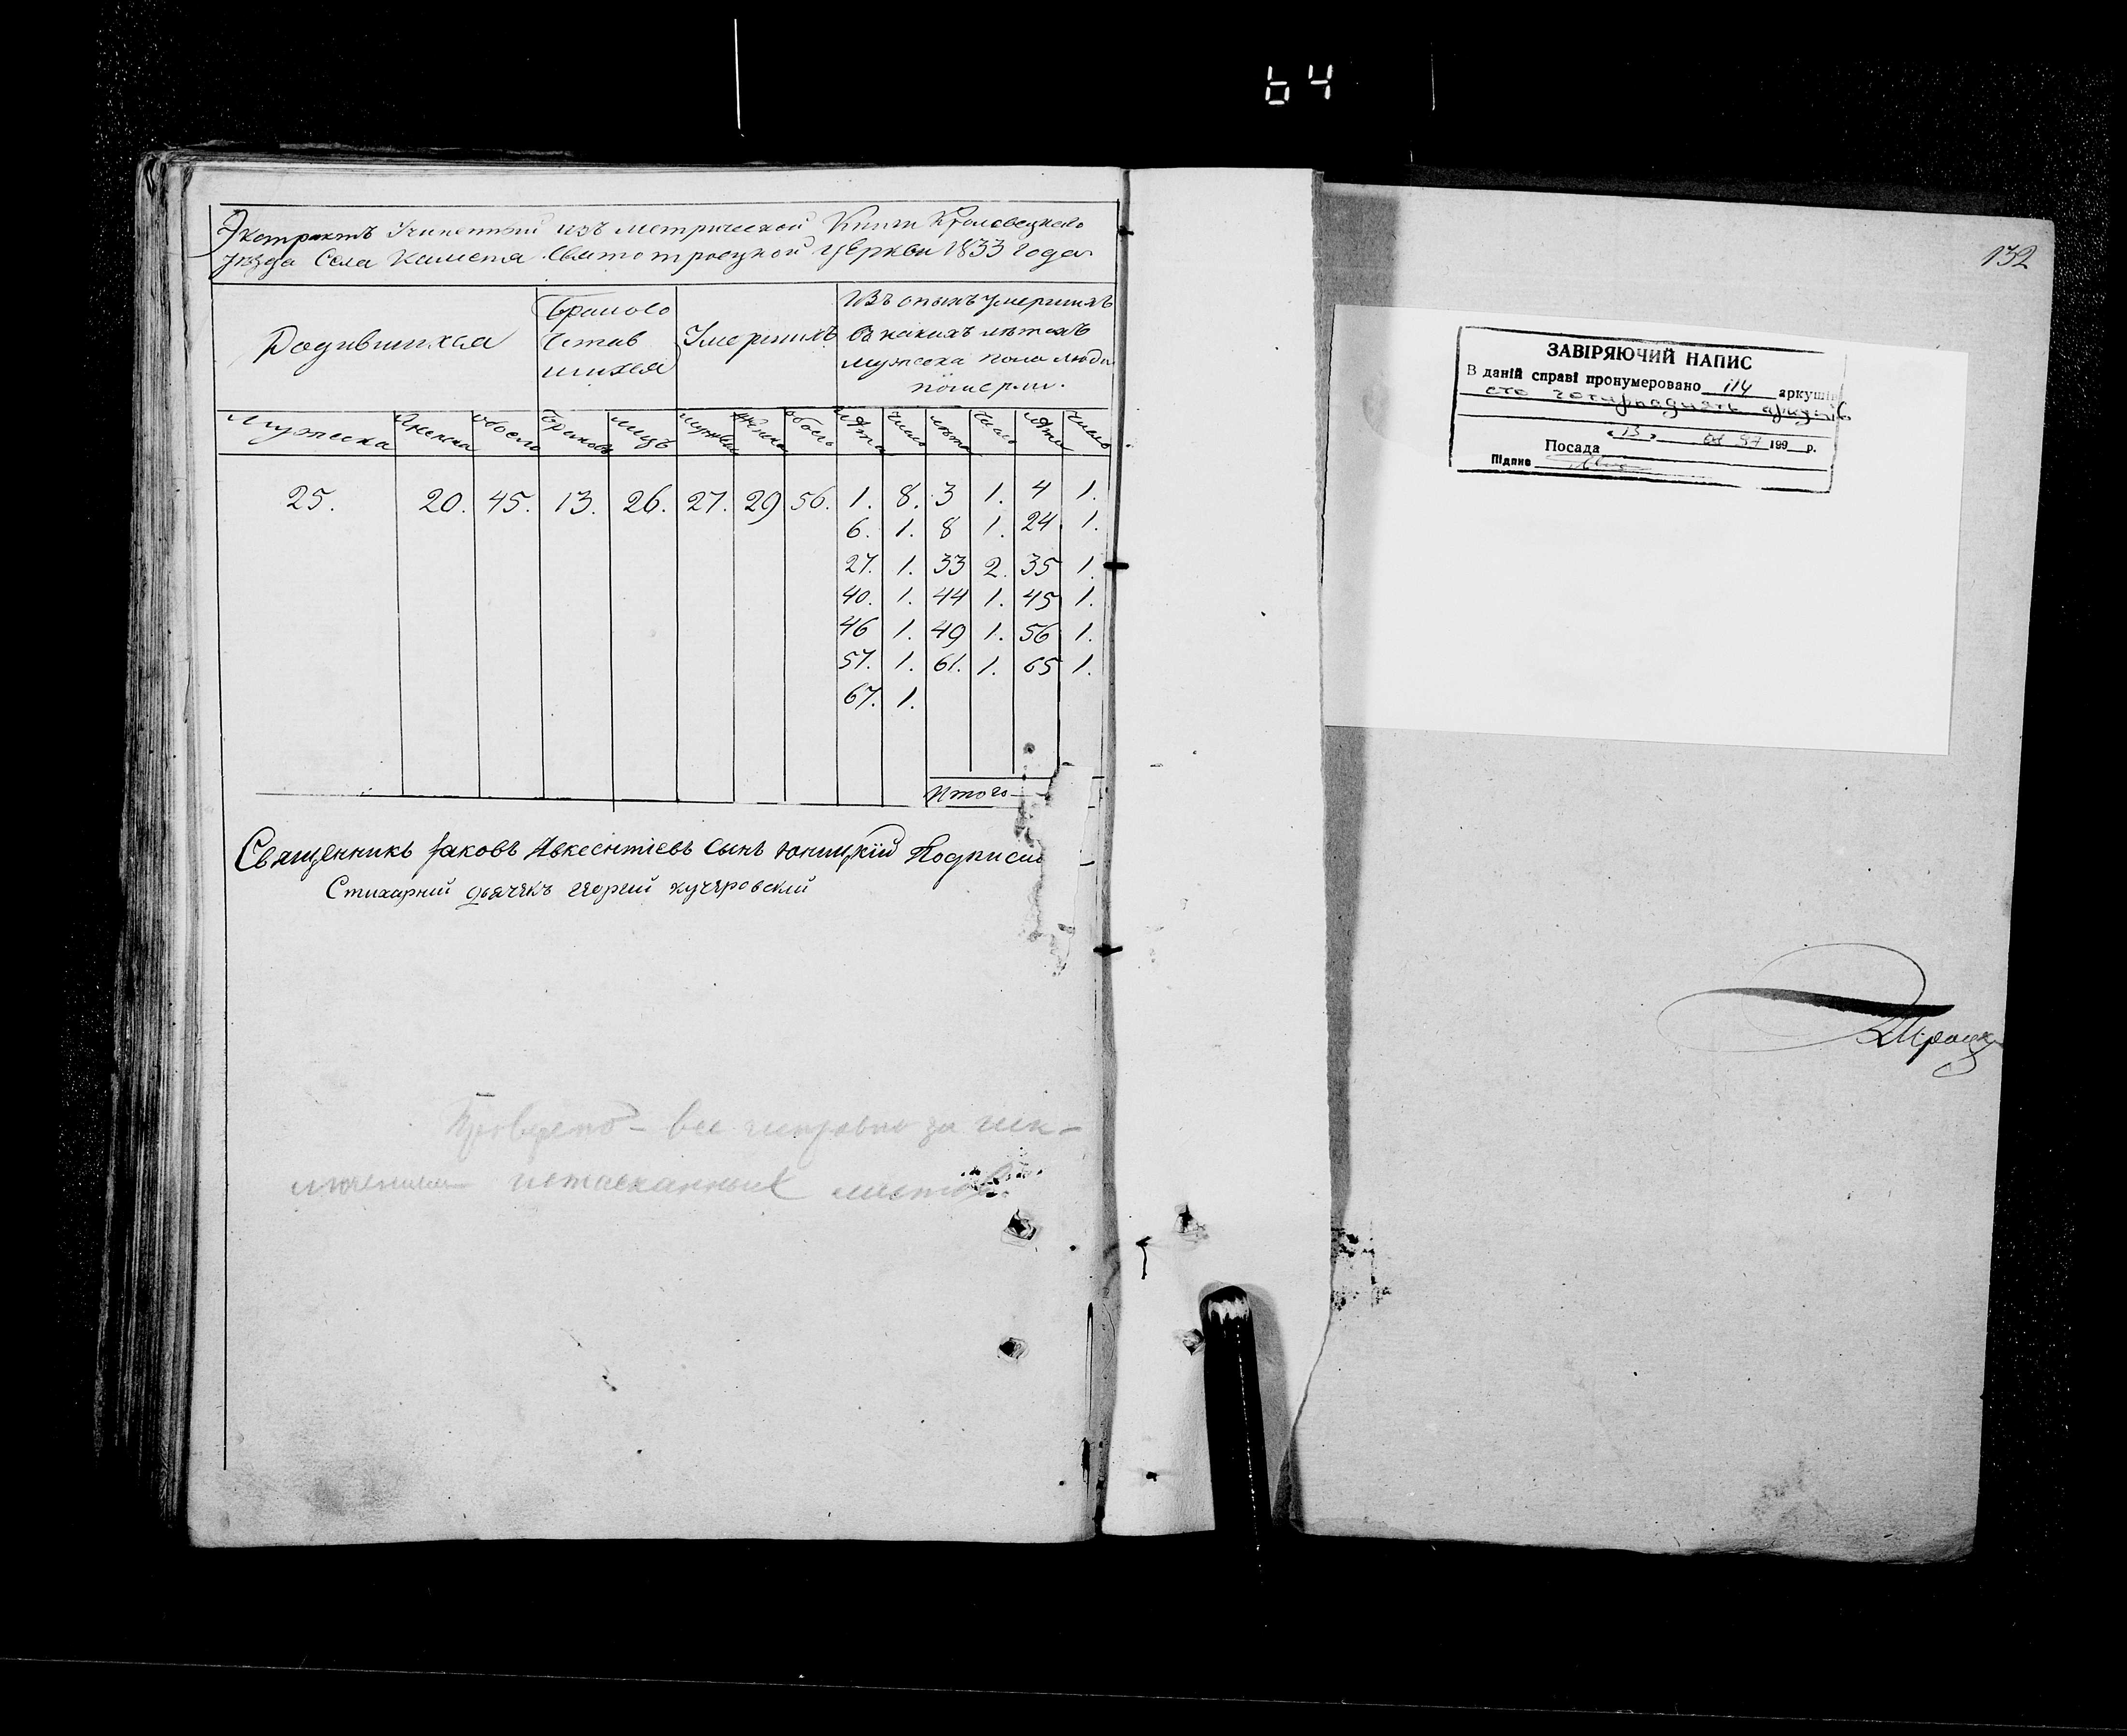 64
Экстрактъ Учиненный изъ метрической Книги Кролевецкаго
уѣзда Села Каменя Святотроецкой Церкви 1833 года
Родившихся
Бракосо
четав
шихся
Умершихъ
Изъ оныхъ умершихъ
въ какихъ лѣтахъ
мужеска пола люди
померли.
Мужеска Женска обоего Браковъ лицъ мужеска Женска обоего лѣта число лѣта число лѣта число
25. 20. 45. 13. 26. 27. 29 56. 1. 8. 3 1. 4 1.
6. 1. 8 1. 24 1.
27. 1. 33 2. 35 1.
40. 1. 44 1. 45 1.
46 1. 49 1. 56 1.
57. 1. 61. 1. 65 1.
67. 1.
Итого
Священникъ Іаковъ Авксентіевъ сынъ Юницкій Подписа
Стихарний дьячекъ георгий кучеровский
Проверено – все исправно за иск-
лючением истасканных листов
132
ЗАВІРЯЮЧИЙ НАПИС
В даній справі пронумеровано 114 аркушів
сто чотирнадцять аркушів
"13" 08 97 199 р.
Посада
Підпис